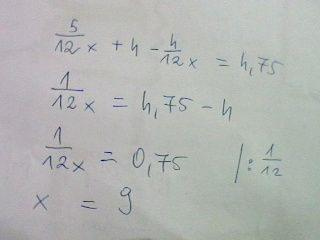 5/12 x + 4 - 4/12 x = 4,75
1/12 x = 4,75 - 4
1/12 x = 0,75 |: 1/12
x = 9